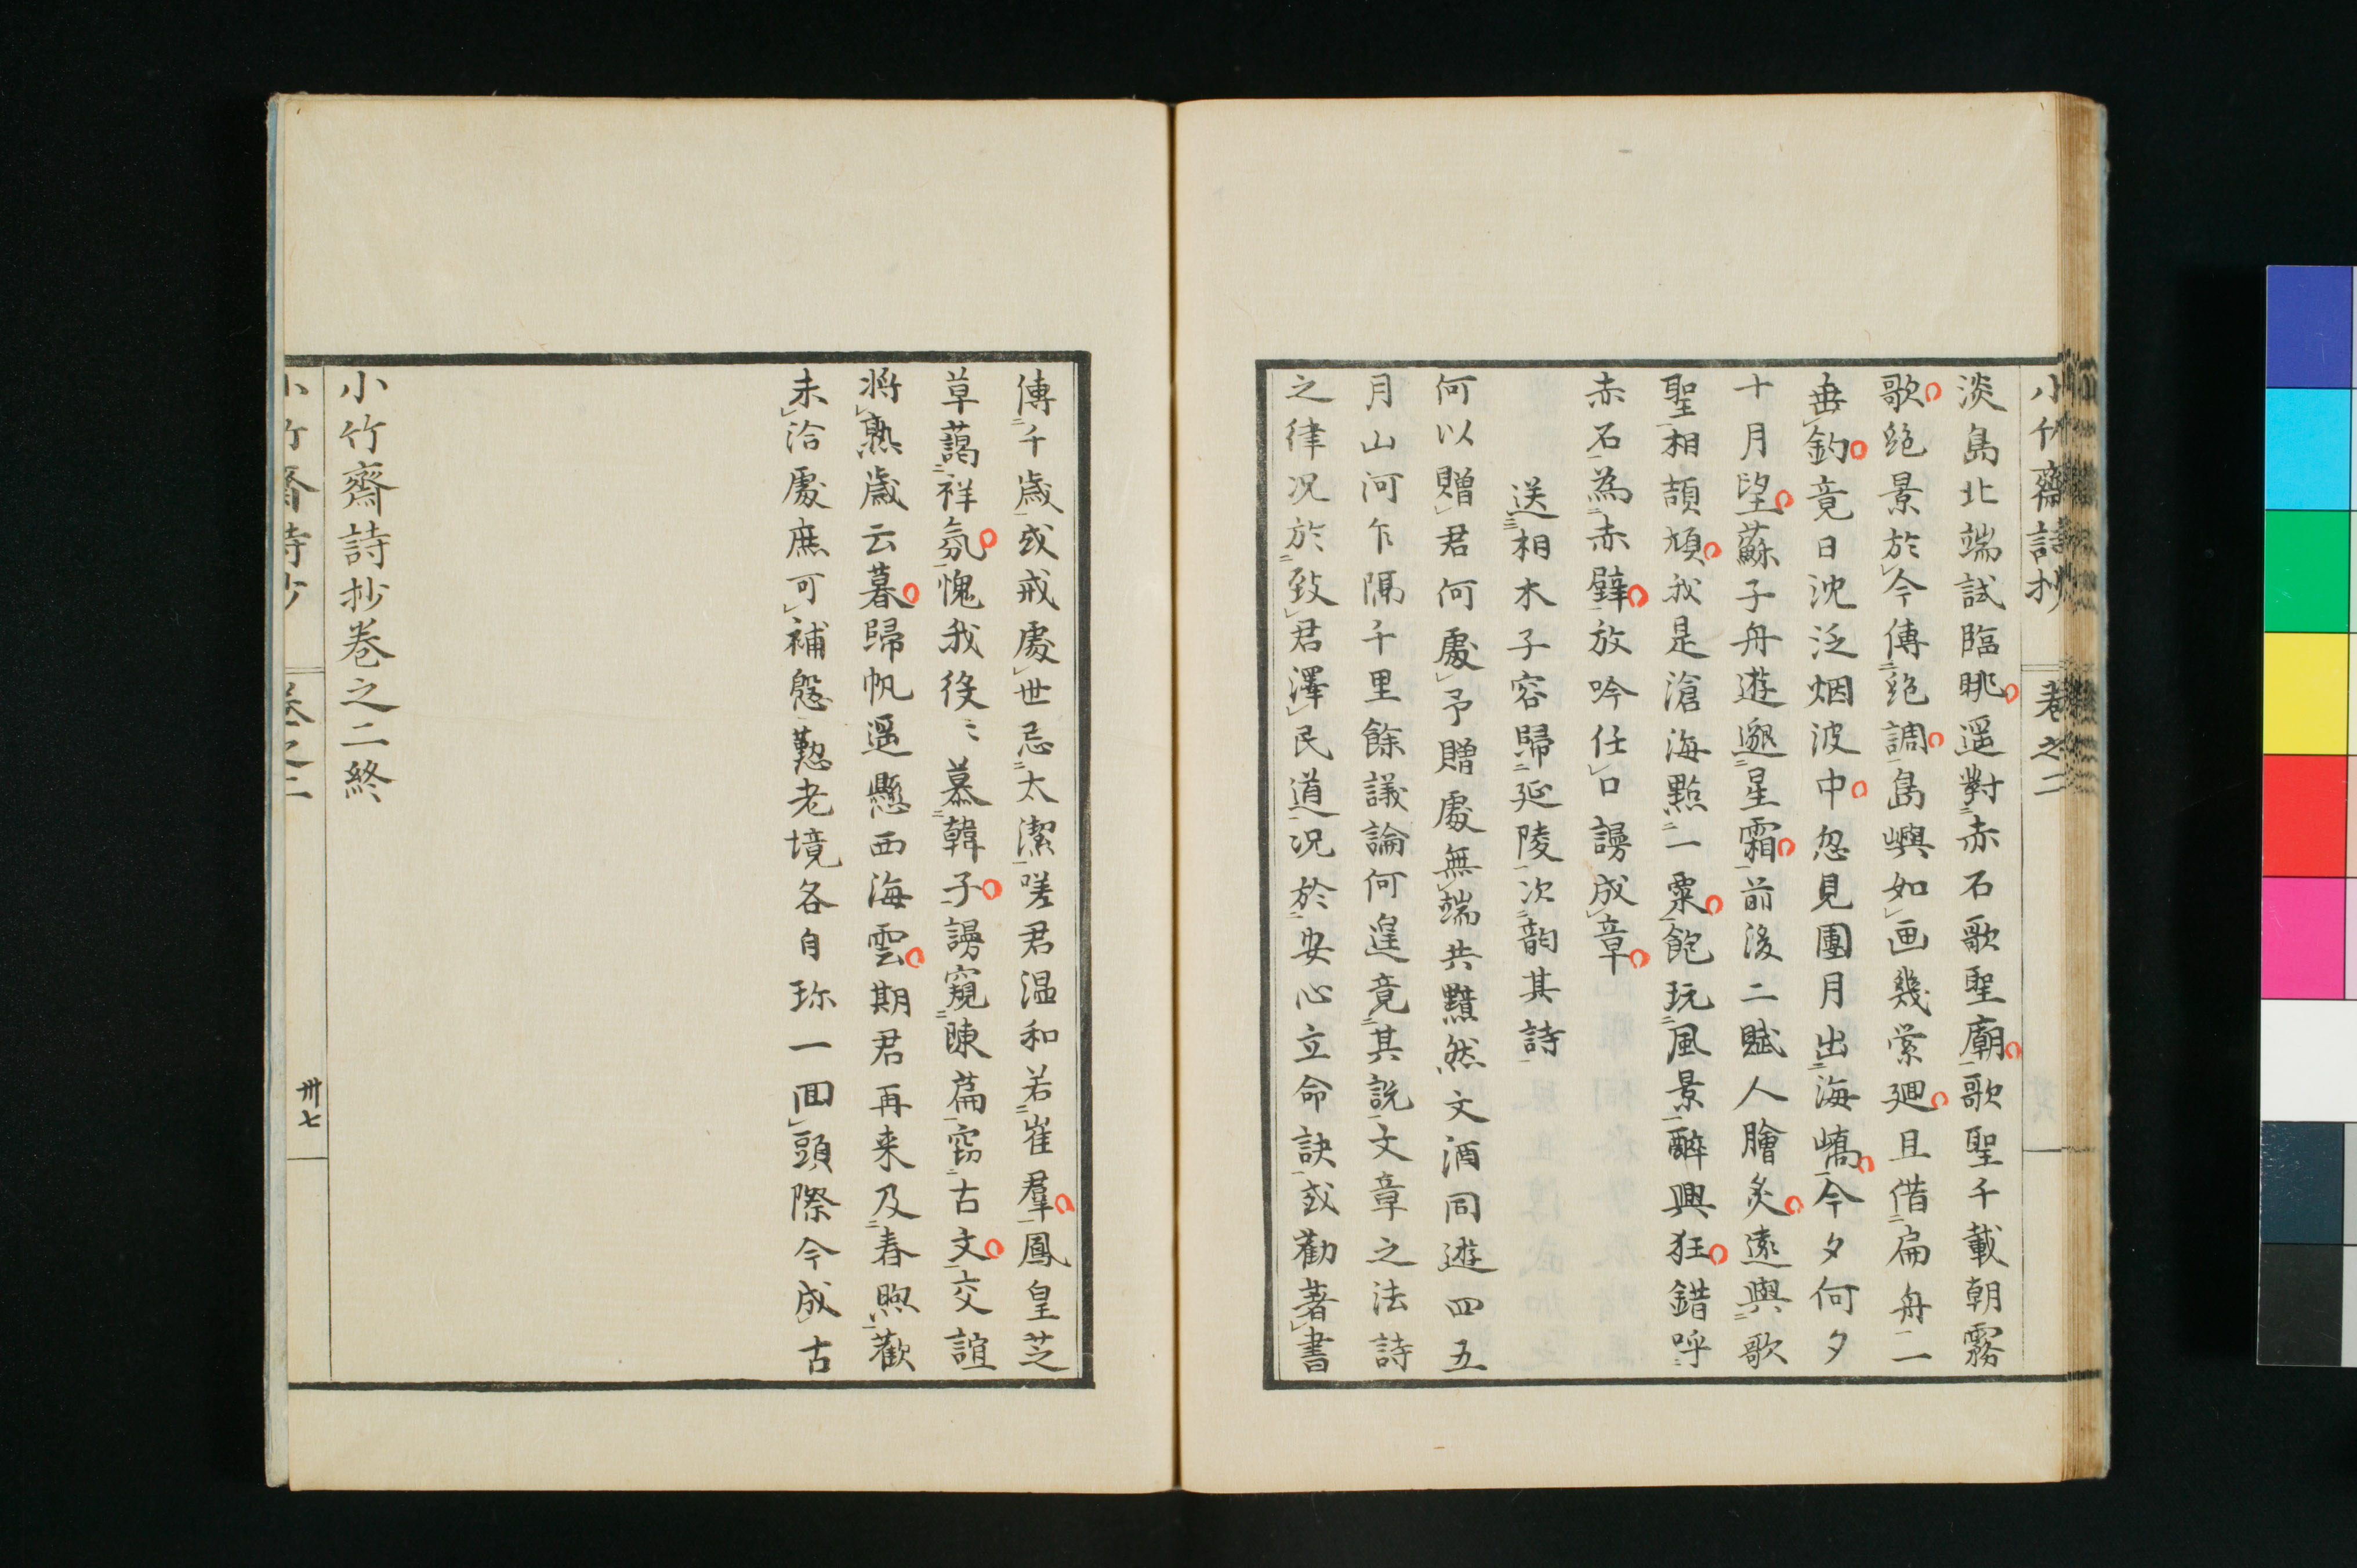 小竹齋詩抄 卷之二
淡島北端試臨眺遥對赤石歌聖廟歌聖千載朝霧
歌絶景於今傳絶調島嶼如画幾縈廻且借扁舟二
垂釣竟日沈泛烟波中忽見團月出海嶠今夕何夕
十月望蘇子舟遊邈星霜前後二賦人膾炙遠與歌
聖相頡頏我是滄海點一粟飽玩風景醉興狂錯呼
赤石為赤壁放吟任口謾成章
送相木子容歸延陵次韵其詩
何以贈君何處予贈處無端共黯然文酒同遊四五
月山河乍隔千里餘議論何遑竟其説文章之法詩
之律況於致君澤民道況於安心立命訣或勸著書
傳千歳或戒處世忌太潔嗟君温和若崔羣鳳皇芝
草藹祥氛愧我後〻慕韓子謾窺陳篇窃古文交誼
將熟歳云暮歸帆遥懸西海雲期君再来及春煦歡
未洽處庶可補慇懃老境各自珎一回頭際今成古
小竹齋詩抄卷之二終
小竹齋詩抄 卷之二 卅七